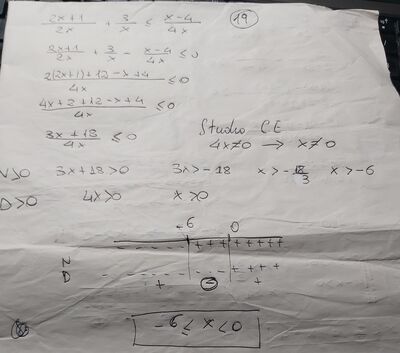 (19)
2x+1/2x + 3/x ≤ x-4/4x
2x+1/2x + 3/x - x-4/4x ≤ 0
2(2x+1)+12-x+4/4x ≤ 0
4x+2+12-x+4/4x ≤ 0
3x+18/4x ≤ 0 Studio C.E
4x≠0 → x≠0
N>0 3x+18>0 3x>-18 x>-18/3 x>-6
D>0 4x>0 x>0
-6 0
N - - - - - + + + + + + + +
D - - - - - - - - + + + +
+ - +
-6 ≤ x < 0